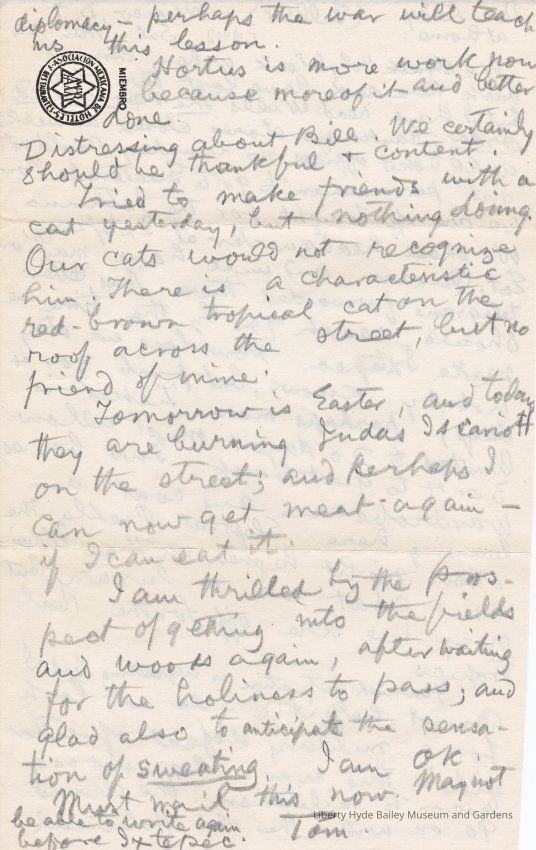 diplomacy — perhaps the war will teach
us this lesson.
Hortus is more work now
because more of it and better
done.
MIEMBRO
ASOCIACION MEXICANA DE HOTELES
Distressing about Bill. We certainly
should be thankful & content.
Tried to make friends with a
cat yesterday, but nothing doing.
Our cats would not recognize
him. There is a characteristic
red-brown tropical cat on the
roof across the street, but no
friend of mine.
Tomorrow is Easter, and today
they are burning Judas Iscariott
on the street; and perhaps I
can now get meat again —
if I can eat it.
I am thrilled by the pros-
pect of getting into the fields
and woods again, after waiting
for the holiness to pass; and
glad also to anticipate the sensa-
tion of sweating. I am OK
Must mail this now. May not
be able to write again
before Ixtepec. Tom.
Liberty Hyde Bailey Museum and Gardens